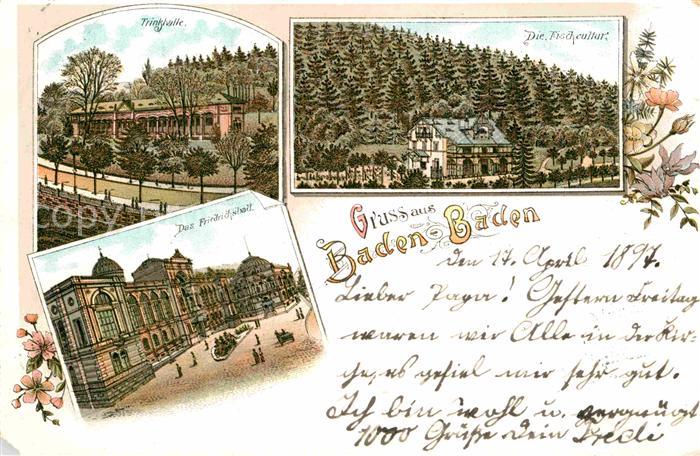 Trinkhalle.
Die Fischcultur.
Das Friedrichsbad.
Gruss aus
Baden-Baden
den 17. April 1897.
Lieber Papa! Gestern Freitag
waren wir Alle in der Kir-
che, es gefiel mir sehr gut.
Ich bin wohl u. vergnügt
1000 Grüße Dein Fredi